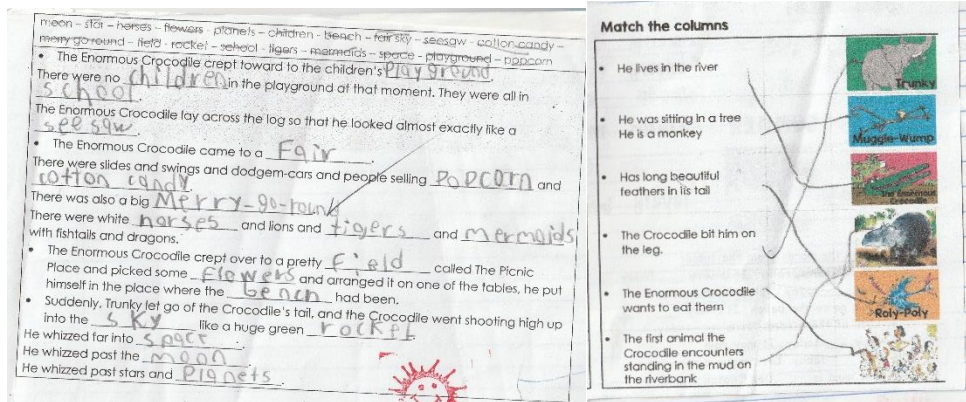 moon – star – horses – flowers - planets – children - bench – fair sky – seesaw - cotton candy –
merry go round – field - rocket - school - tigers – mermaids – space – playground – popcorn
• The Enormous Crocodile crept toward to the children's playground.
There were no children in the playground at that moment. They were all in
school.
The Enormous Crocodile lay across the log so that he looked almost exactly like a
seesaw.
• The Enormous Crocodile came to a Fair.
There were slides and swings and dodgem-cars and people selling popcorn and
cotton candy.
There was also a big Merry-go-round
There were white horses and lions and tigers and mermaids
with fishtails and dragons.
• The Enormous Crocodile crept over to a pretty field called The Picnic
Place and picked some flowers and arranged it on one of the tables, he put
himself in the place where the bench had been.
• Suddenly, Trunky let go of the Crocodile's tail, and the Crocodile went shooting high up
into the sky like a huge green rocket.
He whizzed far into space.
He whizzed past the moon
He whizzed past stars and planets.
Match the columns
• He lives in the river
• He was sitting in a tree
He is a monkey
• Has long beautiful
feathers in its tail
• The Crocodile bit him on
the leg.
• The Enormous Crocodile
wants to eat them
• The first animal the
Crocodile encounters
standing in the mud on
the riverbank
Trunky
Muggle-Wump
The Enormous
Crocodile
Roly-Poly